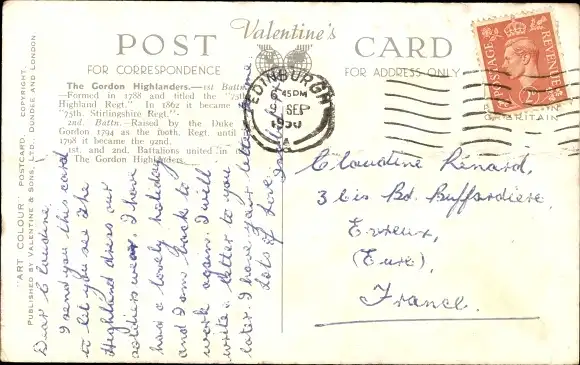 Valentine's
POST CARD
FOR CORRESPONDENCE
FOR ADDRESS ONLY
The Gordon Highlanders.—1st Battn.
—Formed in 1788 and titled the "75th
Highland Regt." In 1862 it became the
"75th. Stirlingshire Regt."
2nd. Battn.—Raised by the Duke
Gordon 1794 as the 100th. Regt. until
1798 it became the 92nd.
1st. and 2nd. Battalions united in
The Gordon Highlanders.
"ART COLOUR" POSTCARD. COPYRIGHT.
PUBLISHED BY VALENTINE & SONS, LTD., DUNDEE AND LONDON
EDINBURGH
6 45PM
SEP
1950
A
POSTAGE
REVENUE
BRITAIN
Dear Claudine
I send you this card
to let you see the
Highland dress our
soldiers wear. I have
had a lovely holiday
and I am back to
work again. I will
write a letter to you
later. I have your letter
Lots of love
Claudine Rénard,
3 bis Bd. Buffardière,
Evreux,
(Eure),
France.